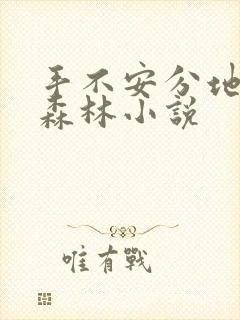 手不安分地
森林小說
唯有戰